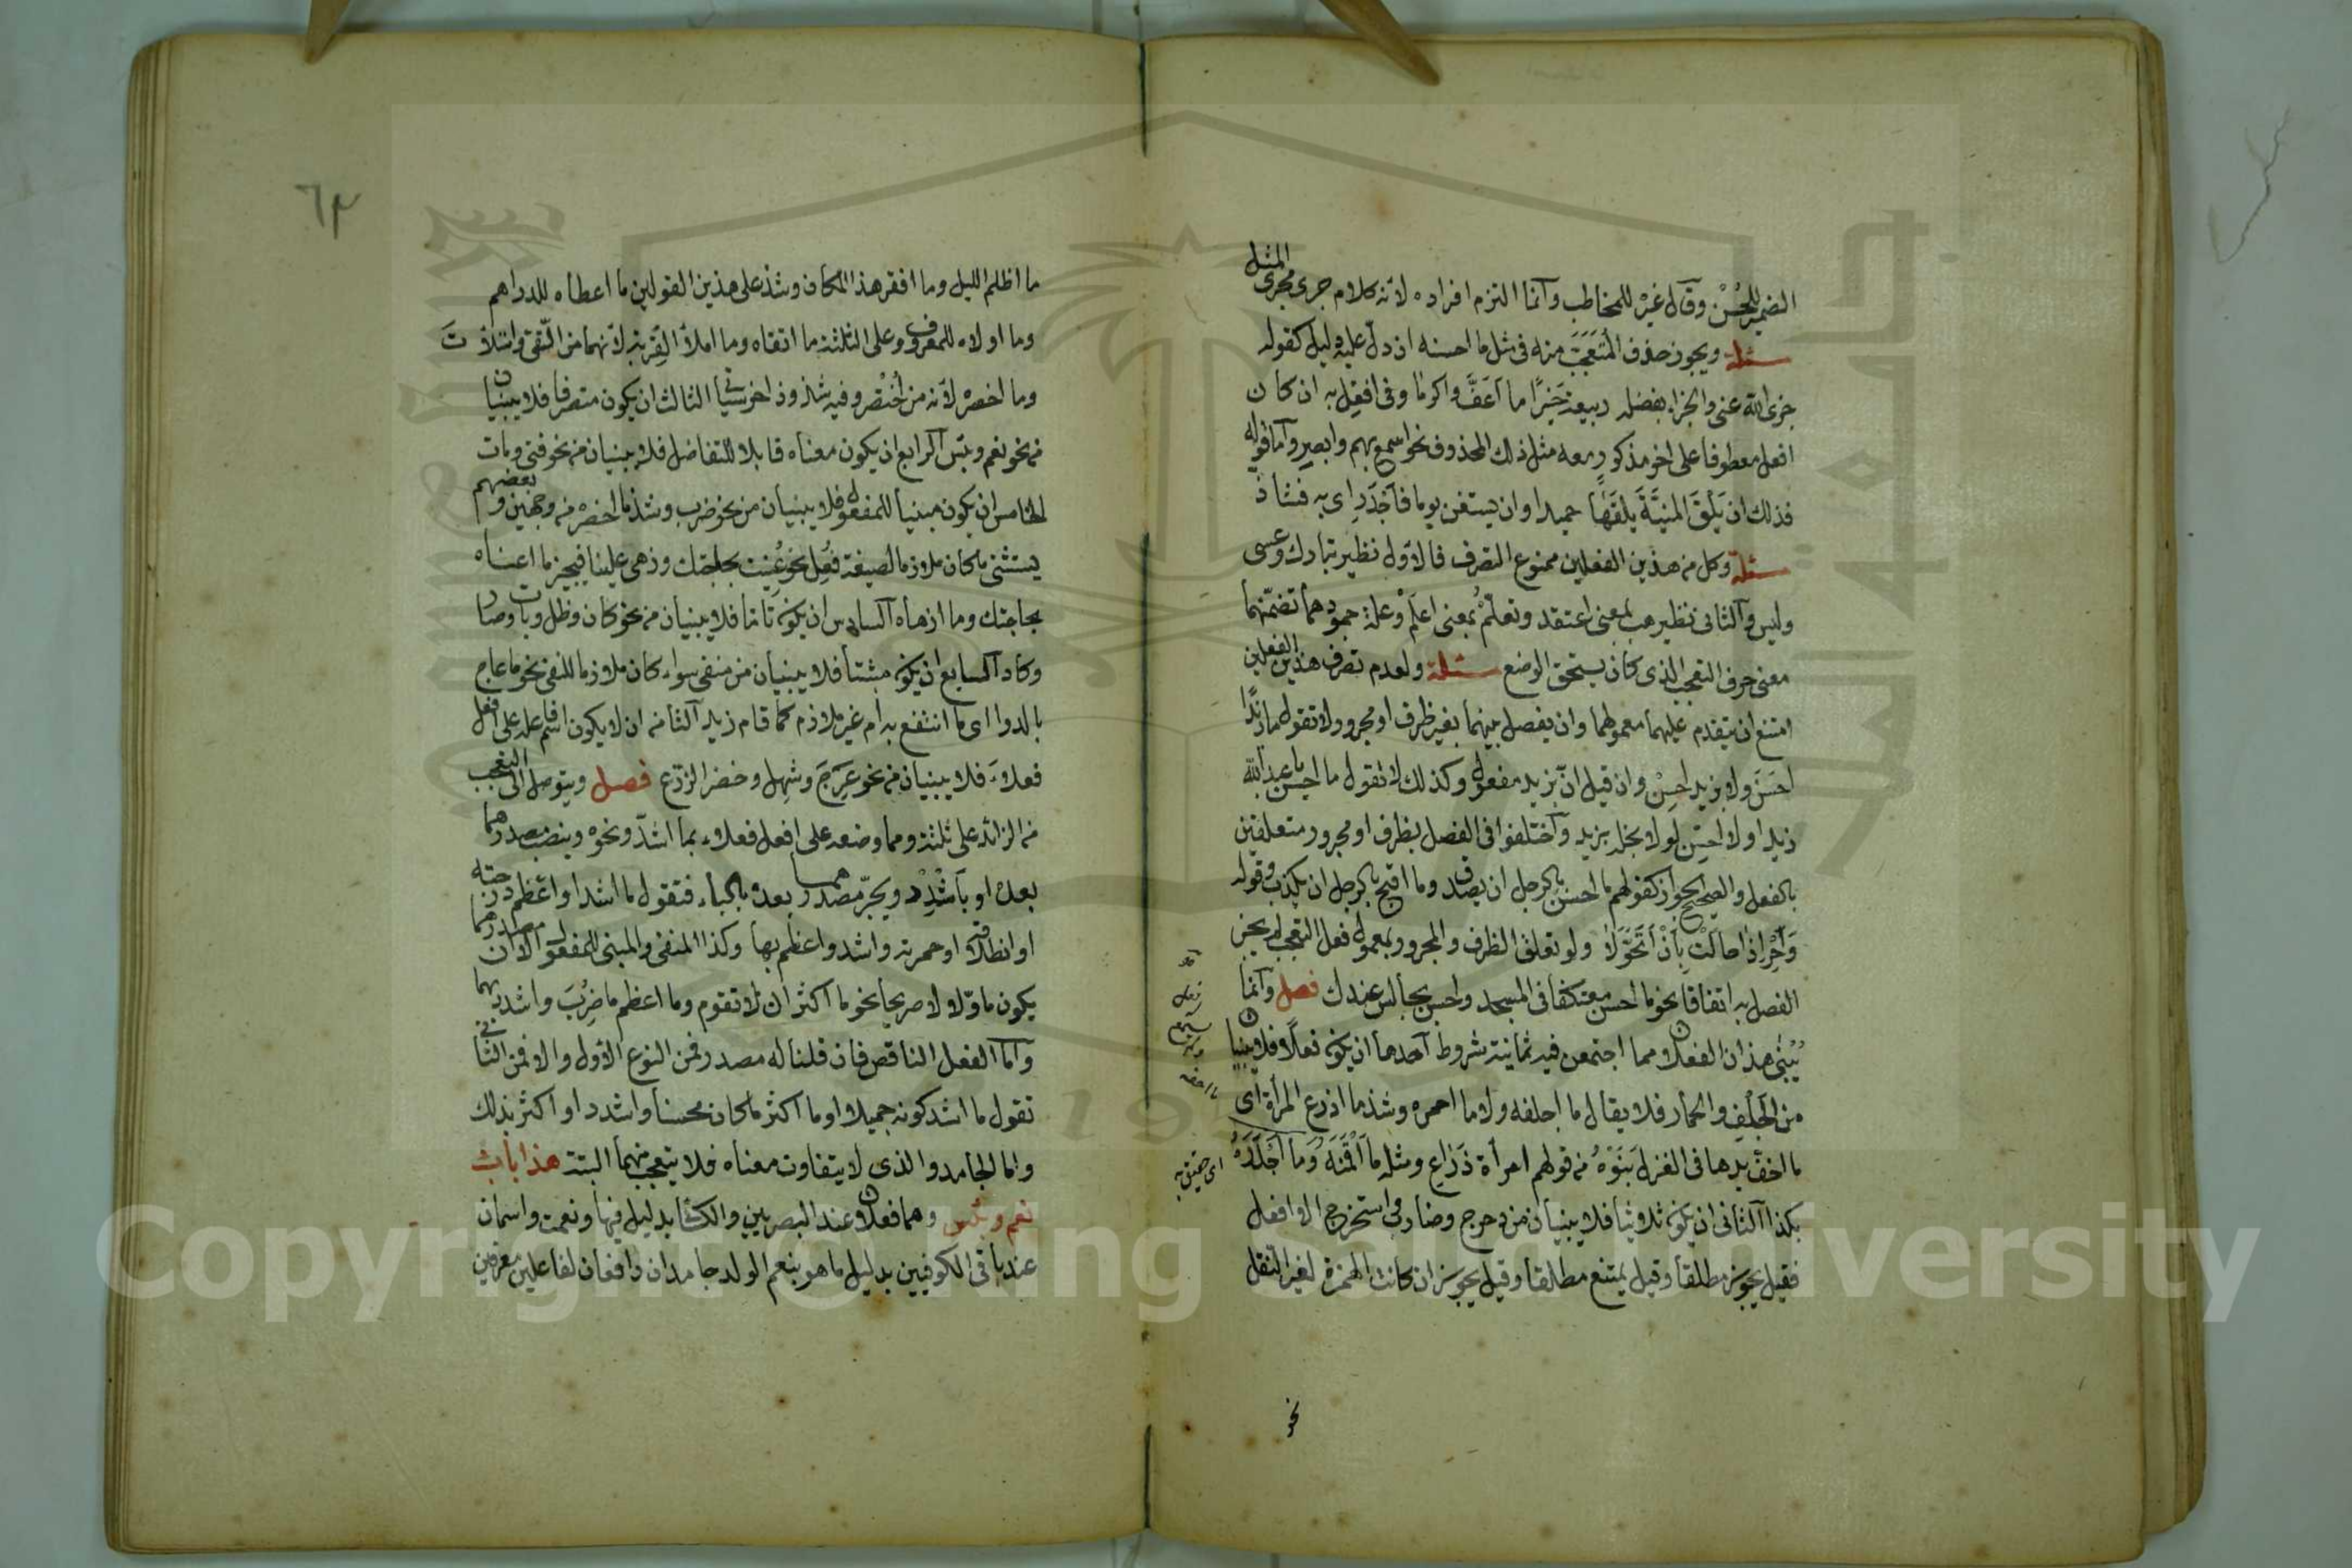 الضمير للحُسْن وقال غيرْ للمخاطب وآنما التزم افراده لانه كلام جرى مجرى المثل
مسئلة ويجوز حذف المُتَعَجَّبَ منه فى مثل ما احسنه ان دلّ عليه دليل كقوله
جزى الله عنى والجزاء بفضله ربيعة خَيرًا ما اَعَفَّ واكرما وفى افعِل به ان كان
افعل معطوفا على اخر مذكور معه مثل ذلك المحذوف نحو اسمع بهم وابصر وآما قوله
فذلك ان يَلْقَ المنيَّةَ يلقَهَا حميدا وان يستغن يوما فَاَجْدَرِ اى به فشاذ
مسئلة وكل من هذين الفعلين ممنوع التصرف فالاول نظير تبارك وعسى
وليس والثانى نظير هب بمعنى اعتقد وتعلّمْ بمعنى اعلَمْ وعلة جمودهما تضمّنهما
معنى حرف التعجب الذى كان يستحق الوضع مسئلة ولعدم تصرف هذين الفعلين
امتنع ان يتقدم عليهما معمولهما وان يفصل بينهما بغير ظرف او مجرور ولا تقول ما زيدًا
احسَنَ ولا بزيد احسِنْ وان قيل انّ بزيد مفعول وكذلك لا تقول ما احسن يا عبد الله
زيدا ولا احسِن لولا بخله بزيد وآختلفوا فى الفصل بظرف او مجرور متعلقين
بالفعل والصحيح الجواز كقولهم ما احسن بالرجل ان يصدق وما اقبح بالرجل ان يكذب وقوله
وَاَحْرِ اذا حالَتْ بِاَنْ اَتَحَوَّلاَ ولو تعلق الظرف والمجرور بمعمول فعل التعجب لم يجز
الفصل به اتفاقا نحو ما احسن معتكفا فى المسجد واحسن بجالس عندك فصل وآنما
يُبْنٰى هذان الفعلان مما اجتمعن فيه ثمانية شروط آحدها ان يكون فعلًا فلا يبنيان
من الجِلْفِ والحمار فلا يقال ما اجلفه ولا ما احمره وشذ ما اذرع المرأة اى
ما اخفّ يدها فى الغزل بَنَوْهُ من قولهم امرأة ذَرَاعٍ ومثله ما اَقْمَنَهُ وَمَا اَجْدَرَهُ
بكذا آلثانى ان يكون ثلاثيا فلا يبنيان من دحرج وضارب واستخرج الا افعل
فقيل يجوز مطلقا وقيل يمتنع مطلقا وقيل يجوز ان كانت الهمزة لغير النقل
نحو
اى حقيق به
٦٣
ما اظلم الليل وما افقر هذا المكان وشذ على هذين القولين ما اعطاه للدراهم
وما اولاه للمعروف وعلى الثلثة ما اتقاه وما املأ القِرْبة لانهما من اتّقى وامتلأت
وما اخصره لانه من اُخْتُصِر وفيه شذوذ اخر سيأتى الثالث ان يكون متصرفا فلا يبنيان
من نحو نعم وبئس آلرابع ان يكون معناه قابلا للتفاضل فلا يبنيان من نحو فنى ومات
الخامس ان يكون مبنيا للمفعول فلا يبنيان من نحو ضرب وشذ ما اخصره من وجهين وبعضهم
يستثنى ما كان ملازما لصيغة فُعِل نحو عُنِيت بحاجتك وزهى علينا فيجيز ما اعناه
بحاجتك وما ازهاه آلسادس ان يكون تاما فلا يبنيان من نحو كان وظل وبات وصار
وكاد آلسابع ان يكون مثبتا فلا يبنيان من منفى سواء كان ملازما للنفى نحو ما عاج
بالدوا اى ما انتفع به ام غير ملازم كما قام زيد آلثامن ان لا يكون اسم فاعله على افعل
فعلاءَ فلا يبنيان من نحو عَرِجَ وشهِل وخضر الزرع فصل ويتوصل الى التعجب
من الزائد على ثلثة ومما وصفه على افعل فعلاء بما اشدّ ونحوه وينصب مصدرهما
بعده او بأَشْدِدْ ويجرّ مصدرهما بعده بالباء فتقول ما اشد او اعظم دحرجته
او انطلاقه او حمرته واشدد واعظم بها وكذا المنفى والمبنى للمفعول الا ان مصدرهما
يكون ماوّلا لا صريحا نحو ما اكثر ان لا تقوم وما اعظم ما ضُرِبَ واشدد بهما
وآما الفعل الناقص فان قلنا له مصدر فمن النوع الاول والا فمن الثانى
تقول ما اشد كونه جميلا او ما اكثر ما كان محسنا واشدد او اكثر بذلك
واما الجامد والذى لا يتفاوت معناه فلا يتعجب منهما البتة هذا باب
نعم وبئس وهما فعلان عند البصريين والكسائى بدليل فبها ونعمت واسمان
عند باقى الكوفيين بدليل ما هو بنعم الولد جامدان رافعان لفاعلين معرفين
Copyright © King Saud University